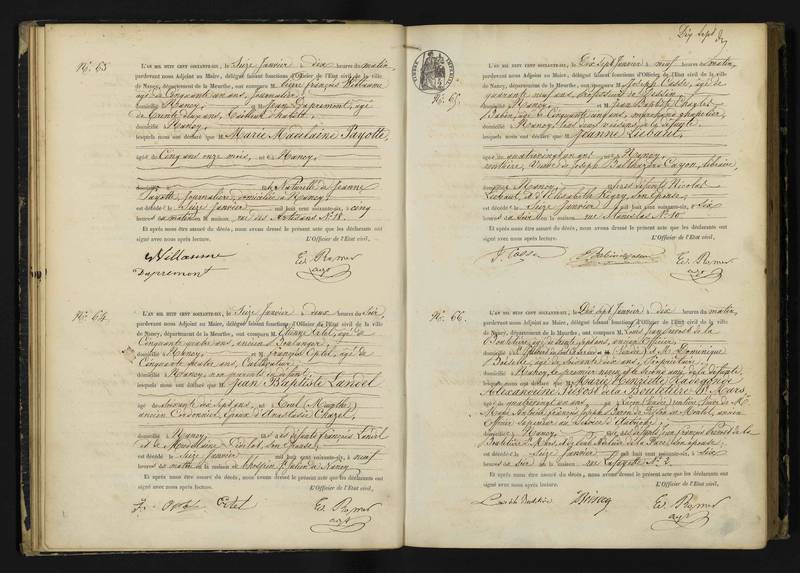 N°. 63
L'AN MIL HUIT CENT SOIXANTE-SIX, le Seize Janvier à dix heures du matin,
pardevant nous Adjoint au Maire, délégué faisant fonctions d'Officier de l'Etat civil de la ville
de Nancy, département de la Meurthe, ont comparu M. François Villaume
âgé de Cinquante un ans, Journalier
domicilié à Nancy, et M. Jean Dapremont, âgé
de Trente ans, Tailleur d'habits
domicilié à Nancy,
lesquels nous ont déclaré que M. Marie Madelaine Payotte,
âgée de Cinq ans onze mois, né à Nancy,
domicilié à fille Naturelle de Jeanne
Payotte, Journalière, domiciliée à Nancy,
est décédé le Seize Janvier mil huit cent soixante-six, à cinq
heures du matin en la maison, rue des Artisans N° 18.
Et après nous être assuré du décès, nous avons dressé le présent acte que les déclarants ont
signé avec nous après lecture. L'Officier de l'Etat civil,
Villaume
Dapremont
N°. 64
L'AN MIL HUIT CENT SOIXANTE-SIX, le Seize Janvier à deux heures du soir,
pardevant nous Adjoint au Maire, délégué faisant fonctions d'Officier de l'Etat civil de la ville
de Nancy, département de la Meurthe, ont comparu M. Etienne âgé de
Cinquante quatre ans, ancien Boulanger
domicilié à Nancy, et M. François âgé de
Cinquante quatre ans, Cultivateur
domicilié à Nancy, non parents du défunt
lesquels nous ont déclaré que M. Jean Baptiste Landel
âgé de soixante dix sept ans, né à Toul (Meurthe)
ancien Cordonnier, Epoux d'Anastasie
domicilié à Nancy, fils des défunts François Landel
et de Madelaine son épouse
est décédé le Seize Janvier mil huit cent soixante-six, à neuf
heures du matin en la maison de l'hospice St Julien de Nancy
Et après nous être assuré du décès, nous avons dressé le présent acte que les déclarants ont
signé avec nous après lecture. L'Officier de l'Etat civil,
Dix Sept
N°. 65.
L'AN MIL HUIT CENT SOIXANTE-SIX, le Dix Sept Janvier à neuf heures du matin,
pardevant nous Adjoint au Maire, délégué faisant fonctions d'Officier de l'Etat civil de la ville
de Nancy, département de la Meurthe, ont comparu M. Joseph Casse, âgé de
quarante neuf ans, Professeur de Dessin
domicilié à Nancy, et M. Jean Baptiste Charles
âgé de Cinquante cinq ans,
domicilié à Nancy, tous deux voisins de la défunte
lesquels nous ont déclaré que M. Jeanne Liébaut,
âgée de quatre vingt un ans née à Nancy,
rentière, Veuve de Joseph Balthazar Cayon, libraire,
domicilié à Nancy, fille des défunts Nicolas
Liébaut, et d'Elisabeth son épouse
est décédé le Seize Janvier mil huit cent soixante-six, à six
heures du soir en la maison, rue Stanislas N° 10
Et après nous être assuré du décès, nous avons dressé le présent acte que les déclarants ont
signé avec nous après lecture. L'Officier de l'Etat civil,
J. Casse
N°. 66.
L'AN MIL HUIT CENT SOIXANTE-SIX, le Dix Sept Janvier à dix heures du matin,
pardevant nous Adjoint au Maire, délégué faisant fonctions d'Officier de l'Etat civil de la ville
de Nancy, département de la Meurthe, ont comparu M. Louis de la
Boutetière, âgé de trente sept ans, ancien Officier
domicilié à (Vendée) et M. Dominique
âgé de Soixante dix ans, Propriétaire
domicilié à Nancy, le premier neveu et le second ami de la défunte
lesquels nous ont déclaré que M. Marie Henriette Radegonde
Alexandrine Prévost de la Boutetière St Mars
âgée de quatre vingt un ans née à Luçon (Vendée) rentière Veuve de Mr
François Joseph Baron de ancien
Officier Supérieur au Service d'Autriche
domicilié à Nancy, fille des défunts François Prévost de la
Boutetière St Mars, et de son épouse
est décédé le Seize Janvier mil huit cent soixante-six, à six
heures du soir en la maison, rue Lafayette N° 2.
Et après nous être assuré du décès, nous avons dressé le présent acte que les déclarants ont
signé avec nous après lecture. L'Officier de l'Etat civil,